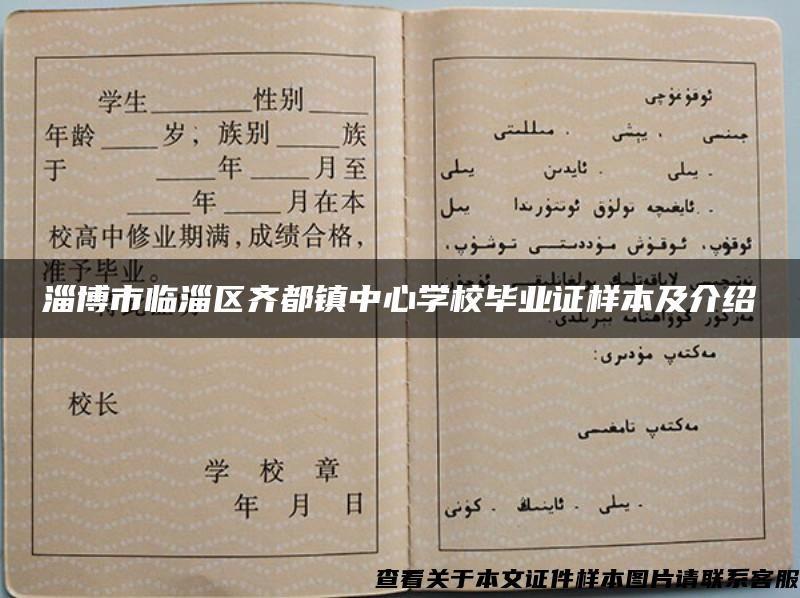 学生______性别____
年龄____岁；族别____族
于 ____年____月至
____年____月在本
校高中修业期满,成绩合格,
准予毕业。
校长
学 校 章
年 月 日
ئوقۇغۇچى
جىنسى . يېشى . مىللىتى
. يىلى . ئايدىن يىلى
. ئايغىچە تولۇق ئوتتۇرىدا يىل
ئوقۇپ، ئوقۇش مۇددىتى توشۇپ،
گۇۋاھنامە بېرىلدى.
مەكتەپ مۇدىرى:
مەكتەپ تامغىسى
. يىلى . ئاينىڭ . كۈنى
淄博市临淄区齐都镇中心学校毕业证样本及介绍
查看关于本文证件样本图片请联系客服